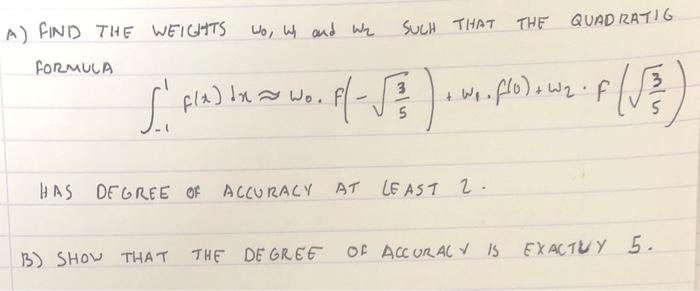 A) FIND THE WEIGHTS w0, w1 and w2 SUCH THAT THE QUADRATIG
FORMULA
∫_{-1}^{1} f(x) dx ≈ w0. f(-√(3/5)) + w1. f(0) + w2. f(√(3/5))
HAS DEGREE OF ACCURACY AT LEAST 2.
B) SHOW THAT THE DEGREE OF ACCURACY IS EXACTLY 5.